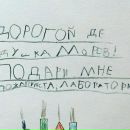 ДОРОГОЙ ДЕ
ДУШКА МОРЕВ!
ПОДАРИ МНЕ
ПОЖАЛУСТА, ЛАБОРАТОРИ